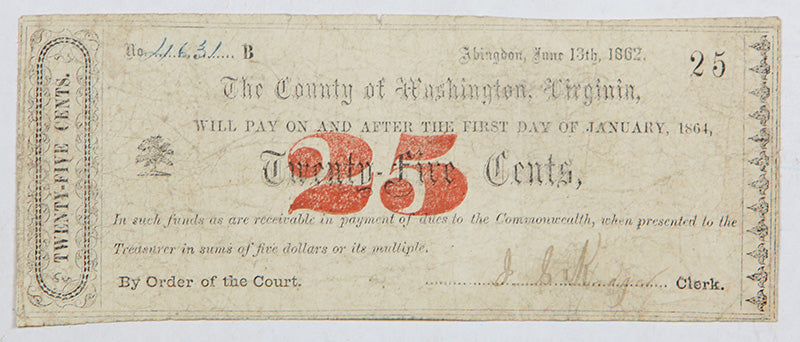 TWENTY-FIVE CENTS.
No. B
Abingdon, June 13th, 1862.
25
The County of Washington, Virginia,
WILL PAY ON AND AFTER THE FIRST DAY OF JANUARY, 1864,
25
Twenty-Five Cents,
In such funds as are receivable in payment of dues to the Commonwealth, when presented to the
Treasurer in sums of five dollars or its multiple.
By Order of the Court.
Clerk.